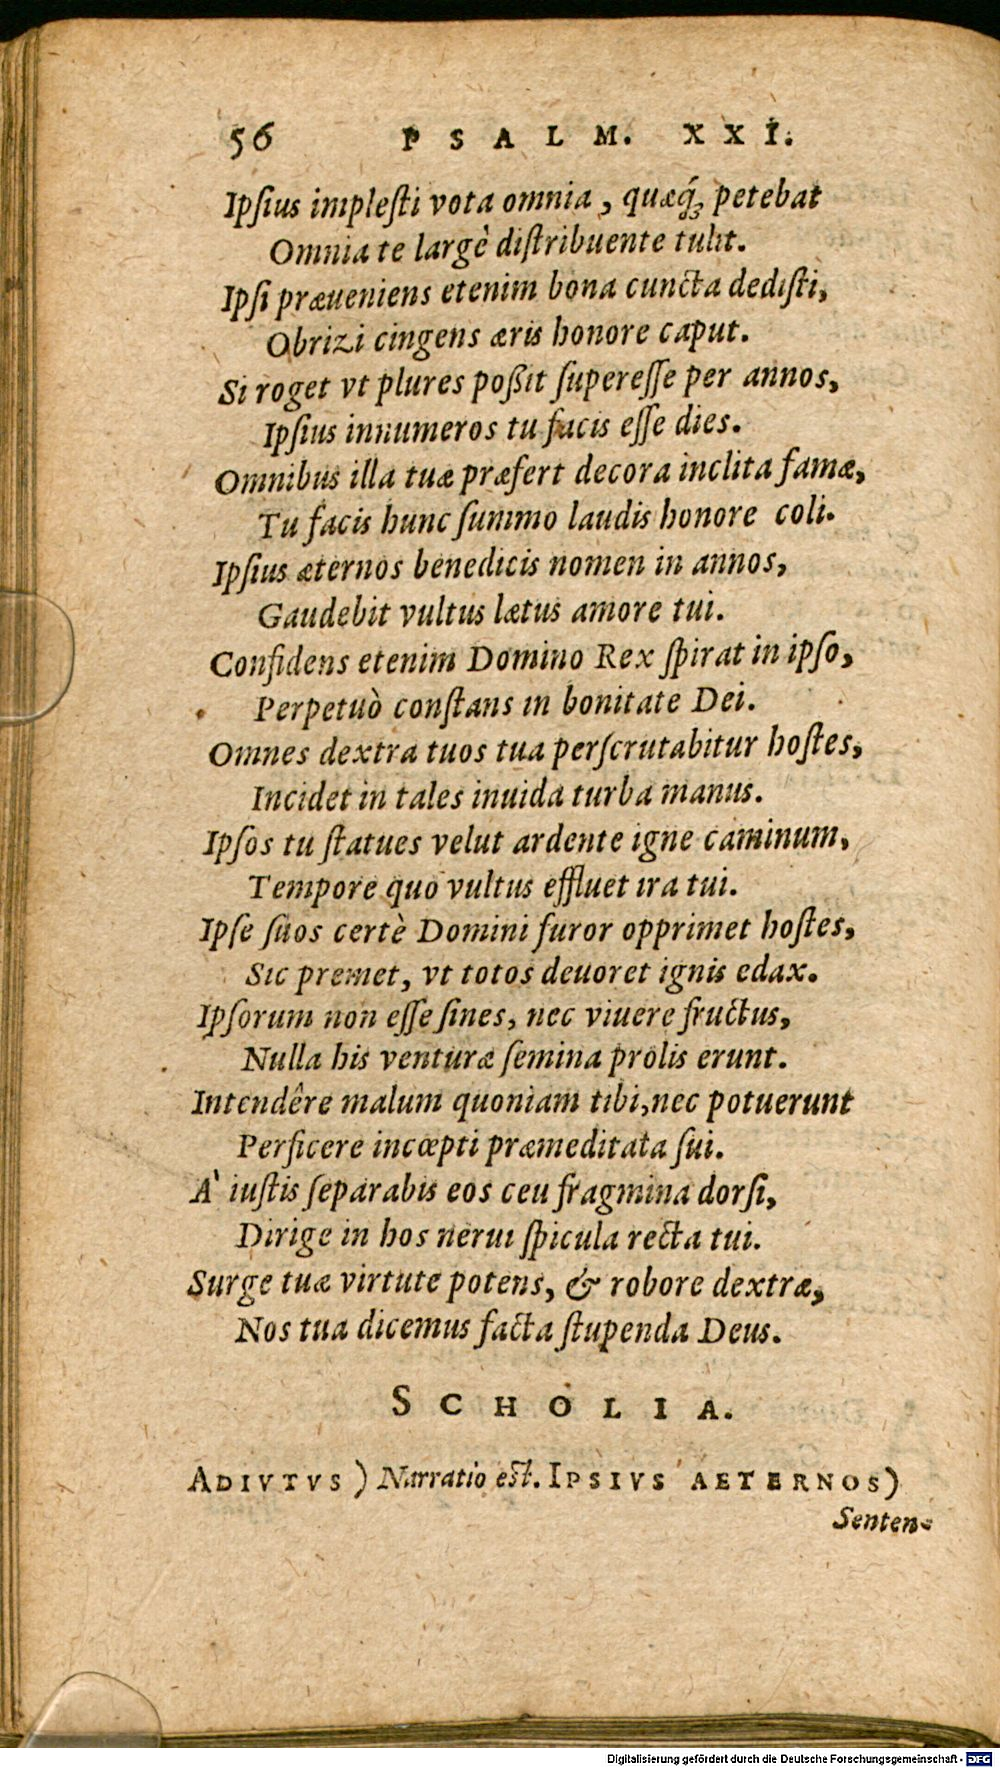 56 PSALM. XXI.
Ipſius impleſti vota omnia, quæq́; petebat
Omnia te largè diſtribuente tulit.
Ipſi præueniens etenim bona cuncta dediſti,
Obrizi cingens æris honore caput.
Si roget vt plures poßit ſupereſſe per annos,
Ipſius innumeros tu facis eſſe dies.
Omnibus illa tuæ præfert decora inclita famæ,
Tu facis hunc ſummo laudis honore coli.
Ipſius æternos benedicis nomen in annos,
Gaudebit vultus lætus amore tui.
Confidens etenim Domino Rex ſpirat in ipſo,
Perpetuò conſtans in bonitate Dei.
Omnes dextra tuos tua perſcrutabitur hoſtes,
Incidet in tales inuida turba manus.
Ipſos tu ſtatues velut ardente igne caminum,
Tempore quo vultus effluet ira tui.
Ipſe ſuos certè Domini furor opprimet hoſtes,
Sic premet, vt totos deuoret ignis edax.
Ipſorum non eſſe ſines, nec viuere fructus,
Nulla his venturæ ſemina prolis erunt.
Intendêre malum quoniam tibi, nec potuerunt
Perficere incœpti præmeditata ſui.
À iuſtis ſeparabis eos ceu fragmina dorſi,
Dirige in hos nerui ſpicula recta tui.
Surge tuæ virtute potens, & robore dextræ,
Nos tua dicemus facta ſtupenda Deus.
SCHOLIA.
ADIVTVS) Narratio eſt. IPSIVS AETERNOS)
Senten-
Digitalisierung gefördert durch die Deutsche Forschungsgemeinschaft - DFG